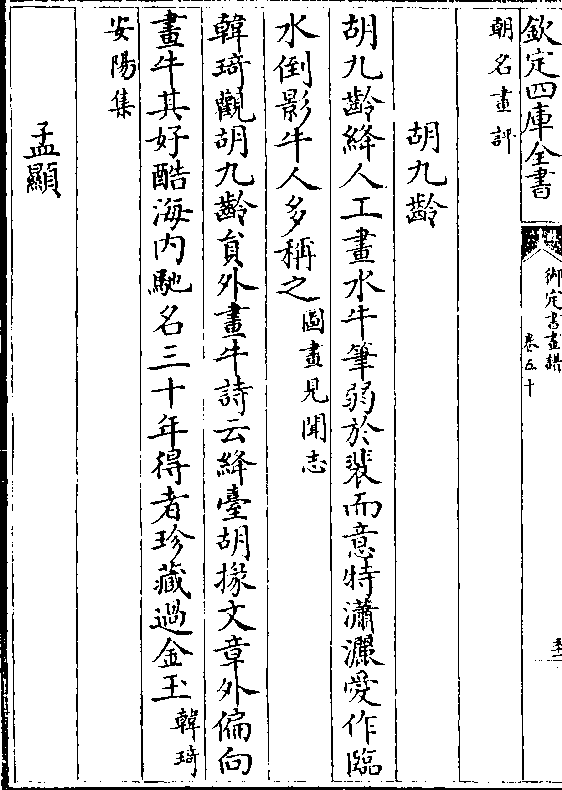 欽定四庫全書
御定書畫譜
卷五十
朝名畫評
胡九齡
胡九齡絳人工畫水牛筆弱於裴而意特瀟灑愛作臨
水倒影牛人多稱之圖畫見聞志
韓琦觀胡九齡員外畫牛詩云絳臺胡掾文章外偏向
畫牛其好酷海内馳名三十年得者珍藏過金玉韓琦
安陽集
孟顯